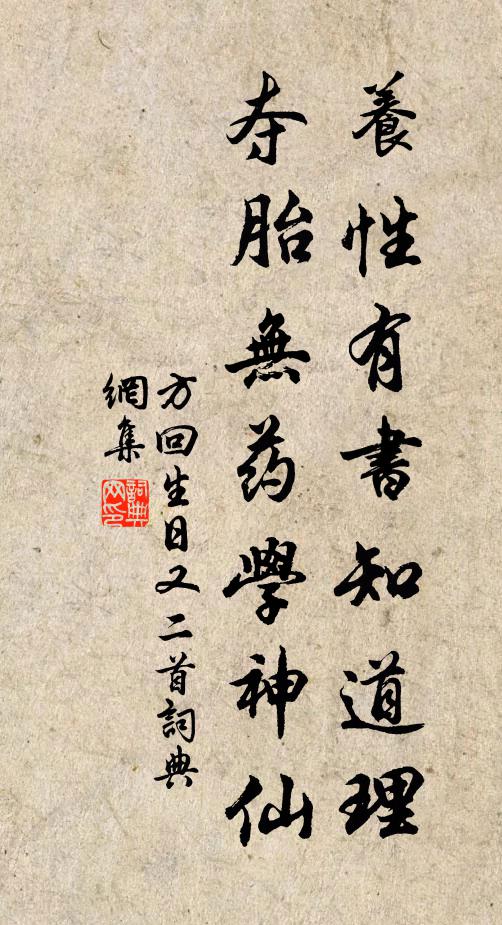 養性有書知道理
夺胎無药學神仙
方回生日又二首詞典
網集
詞典
网印